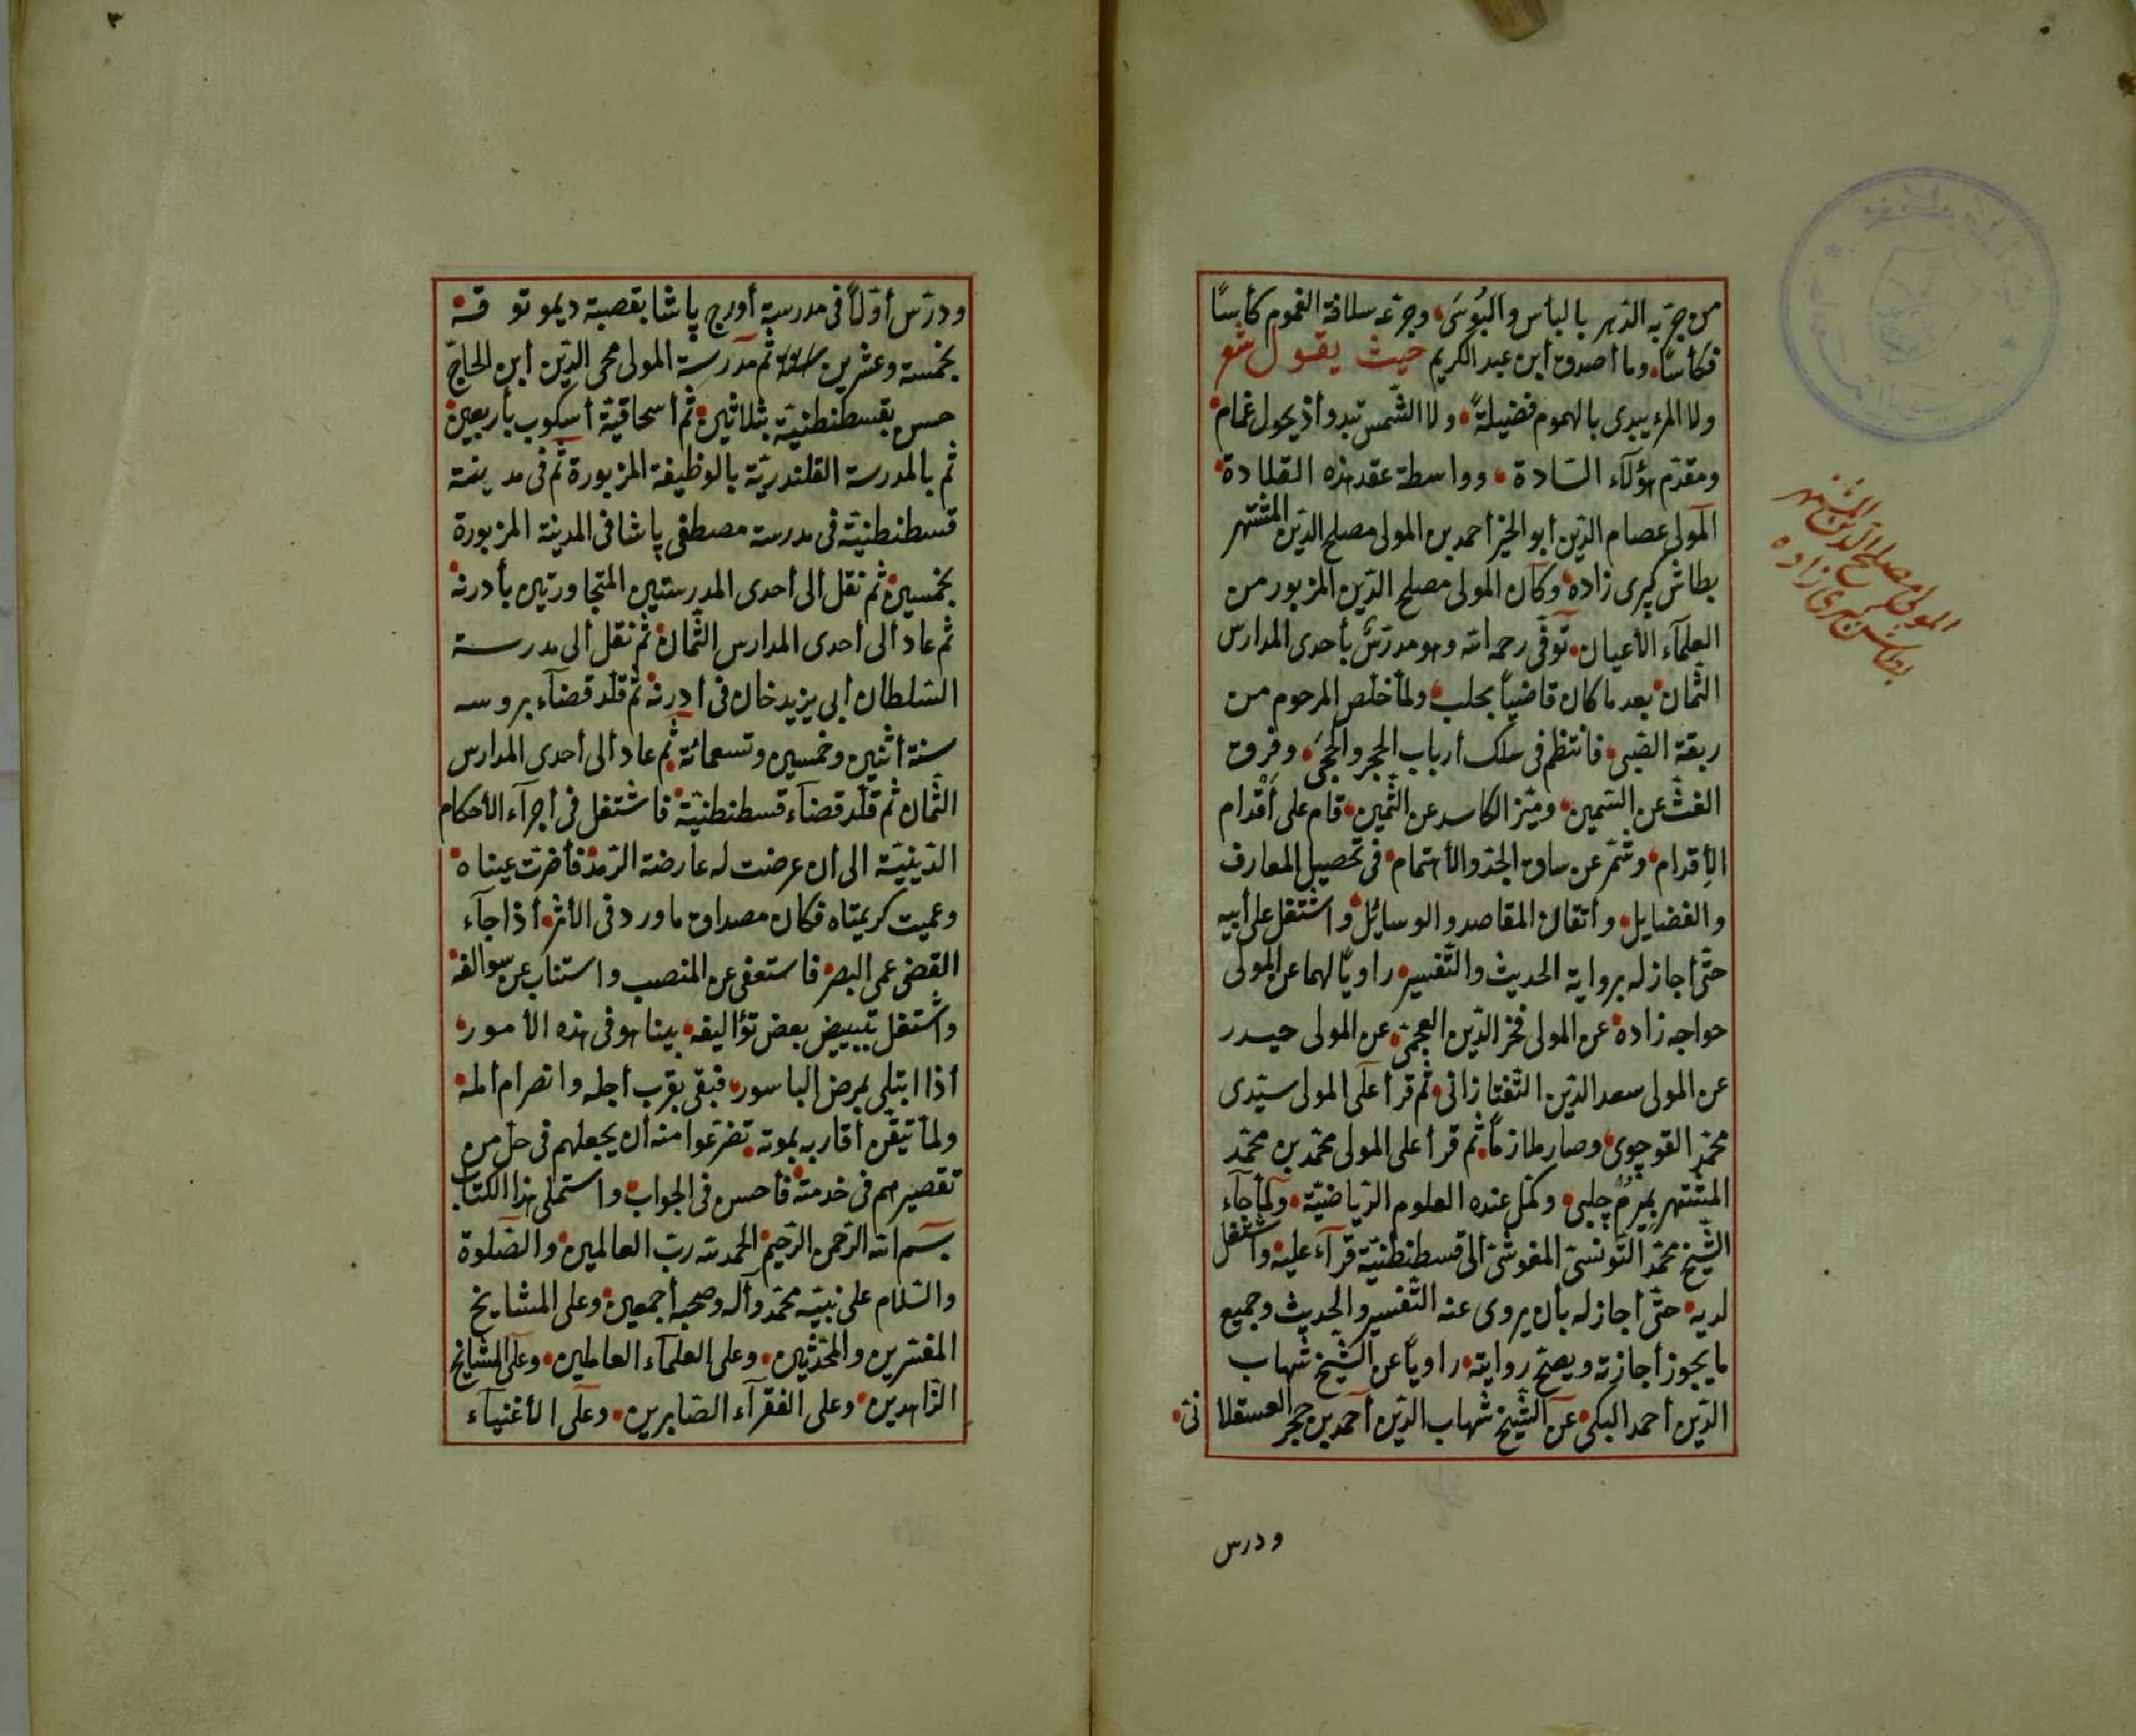 من جرّبه الدّهر بالبأس والبُوسَى، وجرّعه سلافة الغموم كأسًا
فكأسًا. وما أصدق أبن عبد الكريم حيث يقول شعر
ولا المرء يبدى بالهموم فضيلةً ولا الشّمس تبدو أذ يحول غمام
ومقدّم هؤلآء السّادة، وواسطة عقد هذه القلادة
المولى عصام الدّين أبو الخير أحمد بن المولى مصلح الدّين المشتهر
بطاش كپرى زاده وكان المولى مصلح الدّين المزبور من
العلمآء الأعيان. توفّى رحمه الله وهو مدرّسٌ بأحدى المدارس
الثّمان بعد ما كان قاضيًا بحلب ولمّا خلص المرحوم من
ربقة الصّبى، فانتظم فى سلك أرباب الحجر والحجَى، وفروق
الغثّ عن السّمين، وميّز الكاسد عن الثّمين، قام على أقدام
الإقدام، وشمّر عن ساق الجدّ والأهتمام، فى تحصيل المعارف
والفضايل، وأتقان المقاصد والوسائل واشتغل على أبيه
حتّى أجاز له برواية الحديث والتّفسير، راويًا لهما عن المولى
خواجه زاده عن المولى فخر الدّين العجمى، عن المولى حيدر
عن المولى سعد الدّين التّفتازانى، ثم قرأ على المولى سيّدى
محمّد القوجوى، وصار ملازمًا. ثم قرأ على المولى محمّد بن محمّد
المشتهر بميرم چلبى، وكمّل عنده العلوم الرّياضيّة، ولمّا جآء
الشّيخ محمّد التّونسىّ المغوشىّ الى قسطنطنيّة قرآء عليه، واشتغل
لديه، حتّى أجاز له بأن يروى عنه التّفسير والحديث وجميع
ما يجوز أجازته ويصحّ روايته، راويًا عن الشّيخ شهاب
الدّين أحمد البكى، عن الشّيخ شهاب الدّين أحمد بن حجر العسقلانى
ودرس
المولى مصلح الدّين المشتهر
بطاش كپرى زاده
ودرّس أوّلاً فى مدرسة أورج پاشا بقصبة ديموتوقه
بخمسة وعشرين ثم مدرسة المولى محى الدّين أبن الحاجّ
حسن بقسطنطنيّة بثلاثين، ثم أسحاقيّة أسكوب بأربعين
ثم بالمدرسة القلندريّة بالوظيفة المزبورة ثم فى مدينة
قسطنطنيّة فى مدرسة مصطفى پاشا فى المدينة المزبورة
بخمسين ثم نقل الى أحدى المدرستين المتجاورتين بأدرنه
ثم عاد ألى أحدى المدارس الثّمان، ثم نقل ألى مدرسة
السّلطان أبى يزيد خان فى أدرنه ثم قلّد قضآء بروسه
سنة أثنين وخمسين وتسعمائة. ثم عاد ألى أحدى المدارس
الثّمان ثم قلّد قضآء قسطنطنيّة فاشتغل فى أجرآء الأحكام
الدّينيّة الى أن عرضت له عارضة الرّمد فأضرّت عيناه
وعميت كريمتاه فكان مصداق ما ورد فى الأثر، أذا جآء
القضى عمى البصر، فاستعفى عن المنصب واستناب عن سوالفه
واشتغل بتبييض بعض تؤاليفه، بينا هو فى هذه الأمور،
أذا ابتلى بمرض الباسور، فبقى بقرب أجله وانصرام أمله
ولمّا تيقّن أقاربه بموته تضرّعوا منه أن يجعلهم فى حلّ من
تقصيرهم فى خدمته، فأحسن فى الجواب واستملى هذا الكتاب
بسم الله الرّحمن الرّحيم الحمد لله ربّ العالمين، والصّلوة
والسّلام على نبيّه محمّد وآله وصحبه أجمعين وعلى المشايخ
المفسّرين والمحدّثين، وعلى العلمآء العاملين، وعلى المشايخ
الزّاهدين، وعلى الفقرآء الصّابرين، وعلى الأغنيآء